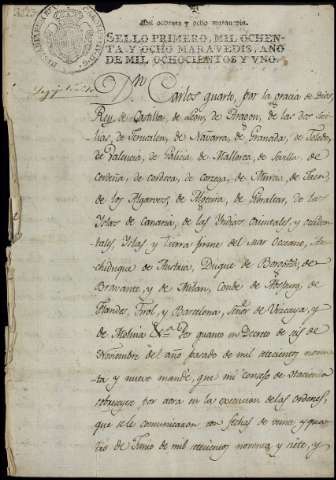 Mil ochenta y ocho maravedis.
SELLO PRIMERO, MIL OCHEN-
TA Y OCHO MARAVEDIS, AÑO
DE MIL OCHOCIENTOS Y VNO.
Dn. Carlos quarto, por la gracia de Dios,
Rey de Castilla, de Leon, de Aragon, de las dos Sici-
lias, de Jerusalen, de Navarra, de Granada, de Toledo,
de Valencia, de Galicia, de Mallorca, de Sevilla, de
Cerdeña, de Cordova, de Corcega, de Murcia, de Jaen,
de los Algarves, de Algecira, de Gibraltar, de las
Yslas de Canaria, de las Yndias orientales y occiden-
tales, Yslas y tierra firme del mar Oceano, Ar-
chiduque de Austria, Duque de Borgoña, de
Bravante, y de Milan, Conde de Abspurg, de
Flandes, Tirol, y Barcelona, Señor de Vizcaya, y
de Molina &a. Por quanto en Decreto de seis de
Noviembre del año pasado de mil setecientos noven-
ta y nueve mandé, que mi consejo de Hacienda
por ahora en la execucion de las ordenes,
que se le comunicaron con fechas de veinte y qua-
tro de Junio de mil setecientos noventa y siete, y